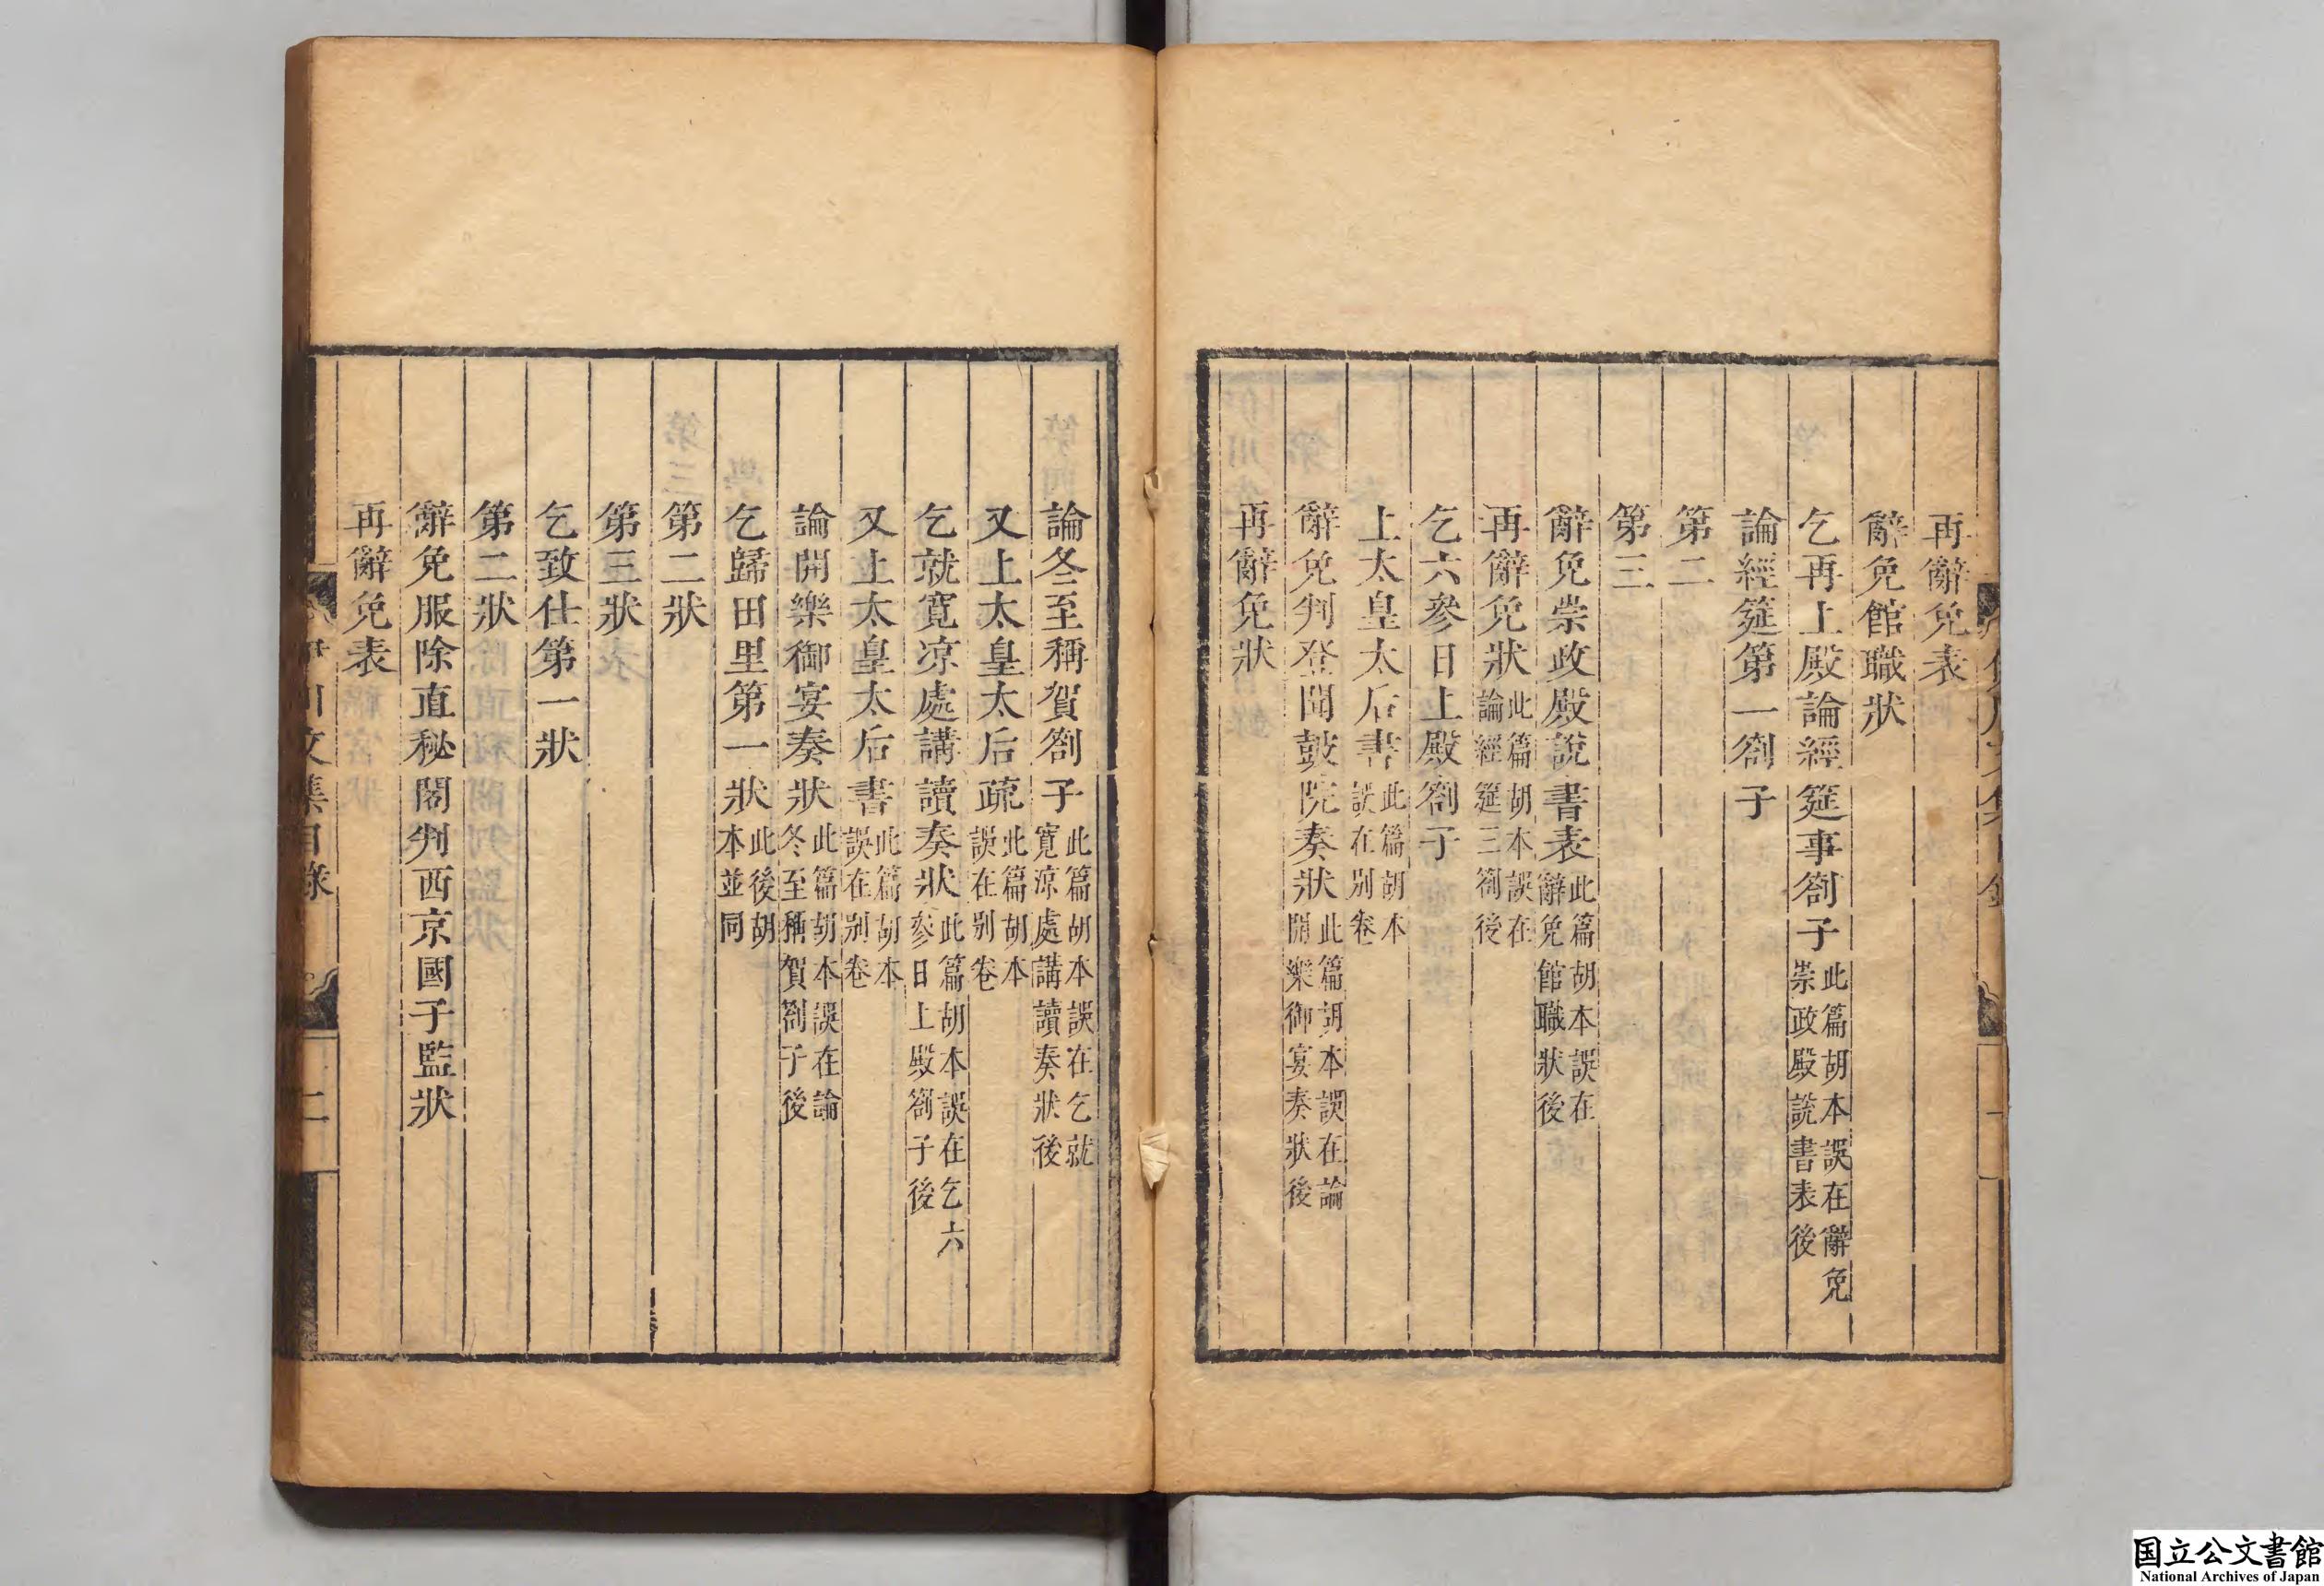 再辭免表
辭免館職狀
乞再上殿論經筵事劄子此篇胡本誤在辭免崇政殿說書表後
論經筵第一劄子
第二
第三
辭免崇政殿說書表此篇胡本誤在辭免館職狀後
再辭免狀此篇胡本誤在論經筵三劄後
乞六參日上殿劄子
上太皇太后書此篇胡本誤在别卷
辭免判登聞鼓院奏狀此篇胡本誤在論開樂御宴奏狀後
再辭免狀
論冬至稱賀劄子此篇胡本誤在乞就寛凉處講讀奏狀後
又上太皇太后疏此篇胡本誤在别卷
乞就寛凉處講讀奏狀此篇胡本誤在乞六參日上殿劄子後
又上太皇太后書此篇胡本誤在别卷
論開樂御宴奏狀此篇胡本誤在論冬至稱賀劄子後
乞歸田里第一狀此後胡本並同
第二狀
第三狀
乞致仕第一狀
第二狀
辭免服除直秘閣判西京國子監狀
再辭免表
伊川文集目錄
二
国立公文書館
National Archives of Japan